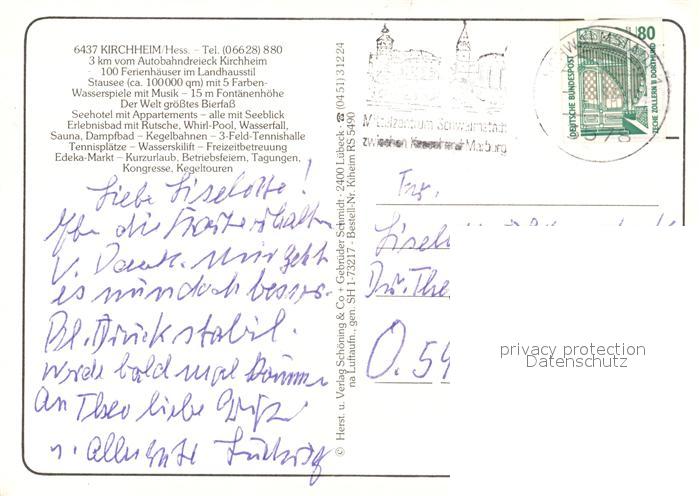 6437 KIRCHHEIM/Hess. – Tel. (0 66 28) 8 80
3 km vom Autobahndreieck Kirchheim
100 Ferienhäuser im Landhausstil
Stausee (ca. 100 000 qm) mit 5 Farben-
Wasserspiele mit Musik – 15 m Fontänenhöhe
Der Welt größtes Bierfaß
Seehotel mit Appartements – alle mit Seeblick
Erlebnisbad mit Rutsche, Whirl-Pool, Wasserfall,
Sauna, Dampfbad – Kegelbahnen – 3-Feld-Tennishalle
Tennisplätze – Wasserskilift – Freizeitbetreuung
Edeka-Markt – Kurzurlaub, Betriebsfeiern, Tagungen,
Kongresse, Kegeltouren
Liebe Liselotte!
die Karte erhalten
V. Dank. Mir geht
es nun doch besser.
Bl. Druck stabil.
Werde bald mal kommen
An Theo liebe Grüße
u. alles Gute Ludwig
© Herst. u. Verlag Schöning & Co + Gebrüder Schmidt · 2400 Lübeck · ☎ (04 51) 3 12 24
na Luftaufn., gen. SH 1-73217 - Bestell-Nr. Kiheim RS 5490
Mittelzentrum Schwalmstadt
zwischen Kassel und Marburg
80
DEUTSCHE BUNDESPOST
ZECHE ZOLLERN II DORTMUND
Liesel
O. 54
privacy protection
Datenschutz